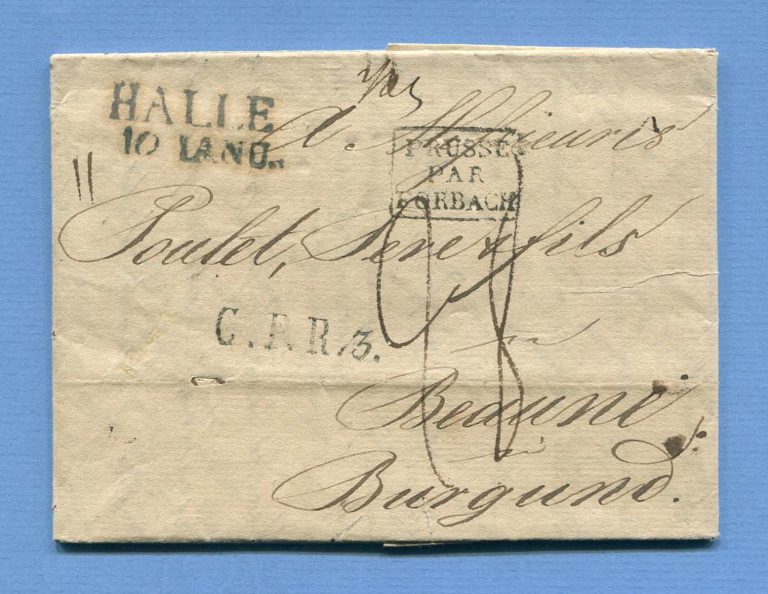 HALLE
10 IANU..
A Messieurs
PRUSSE
PAR
FORBACH
Poulet, Pere & fils
C.P.R.3.
Beaune
Burgund.